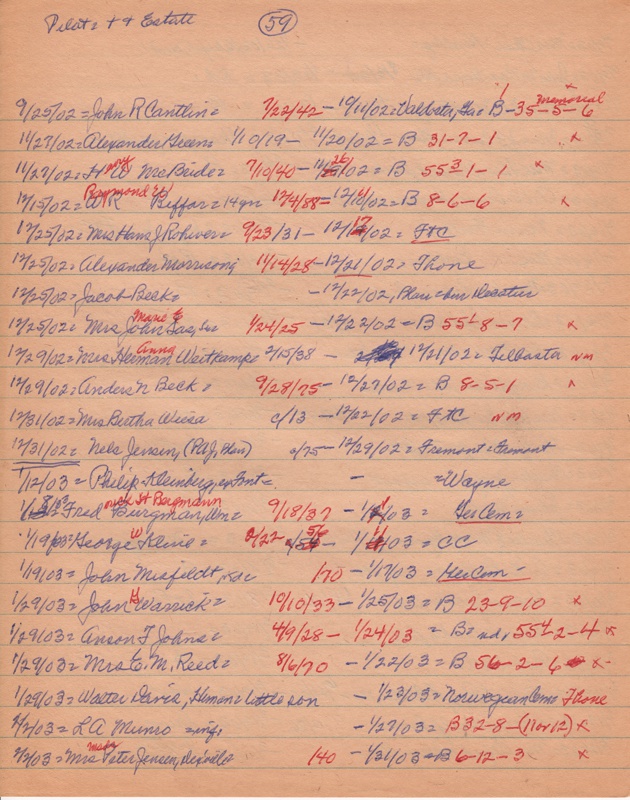 Pilot = & Estate (59)
9/25/02 = John R Cantlin = 7/22/42 - 10/11/02 = Valdosta, Ga = B - 35-5-6 Memorial x
11/27/02 = Alexander Green = 1/10/19 - 11/20/02 = B 31-7-1 x
11/27/02 = H W McBride = 7/10/40 - 11/26/02 = B 55 3-1-1 x
12/15/02 = Raymond W Biffar = 14 yr 12/4/88 = 12/10/02 = B 8-6-6 x
12/25/02 = Mrs Hans J Rohwer = 9/23/31 - 12/17/02 = FtC
12/25/02 = Alexander Morrison 11/14/28 - 12/21/02 = Fhone
12/25/02 = Jacob Beck = - 12/22/02,
12/25/02 = Mrs Marie E John 1/24/25 - 12/22/02 = B 55 1-8-7 x
12/29/02 = Mrs Anna Herman Weitkampe 2/15/38 - 12/21/02 = Telbasta NM
12/29/02 = Anders N Beck = 9/28/75 - 12/27/02 = B 8-5-1 x
12/31/02 = Mrs Bertha Weise c/13 - 12/22/02 = FtC NM
12/31/02 = Nels Jensen, c/75 - 12/29/02 = Fremont = Fremont
1/12/03 = Philip Kleinberg, - = Wayne
Fred Burgman, Wm = St Bergmann 9/18/37 - /03 = Ger Cem =
1/19/03 = George W 2/22 56 - /03 = CC
1/19/03 = John Misfeldt, 1/70 - 1/17/03 = Ger Cem -
1/29/03 = John G Warrick = 10/10/33 - 1/25/03 = B 23-9-10 x
1/29/03 = Anson F Johns = 4/9/28 - 1/24/03 = B = nd, 55 4-2-4 x
1/29/03 = Mrs C. M. Reed = 8/6/70 - 1/22/03 = B 56-2-6 x
1/29/03 = Walter Davis, Heman's little son - 1/23/03 = Norwegian Cem = Fhone
2/2/03 = L A Munro = inf, - 1/27/03 = B 32-8-(11 or 12) x
2/2/03 = Mrs Peter Jensen, 1/40 - 1/31/03 = B 6-12-3 x